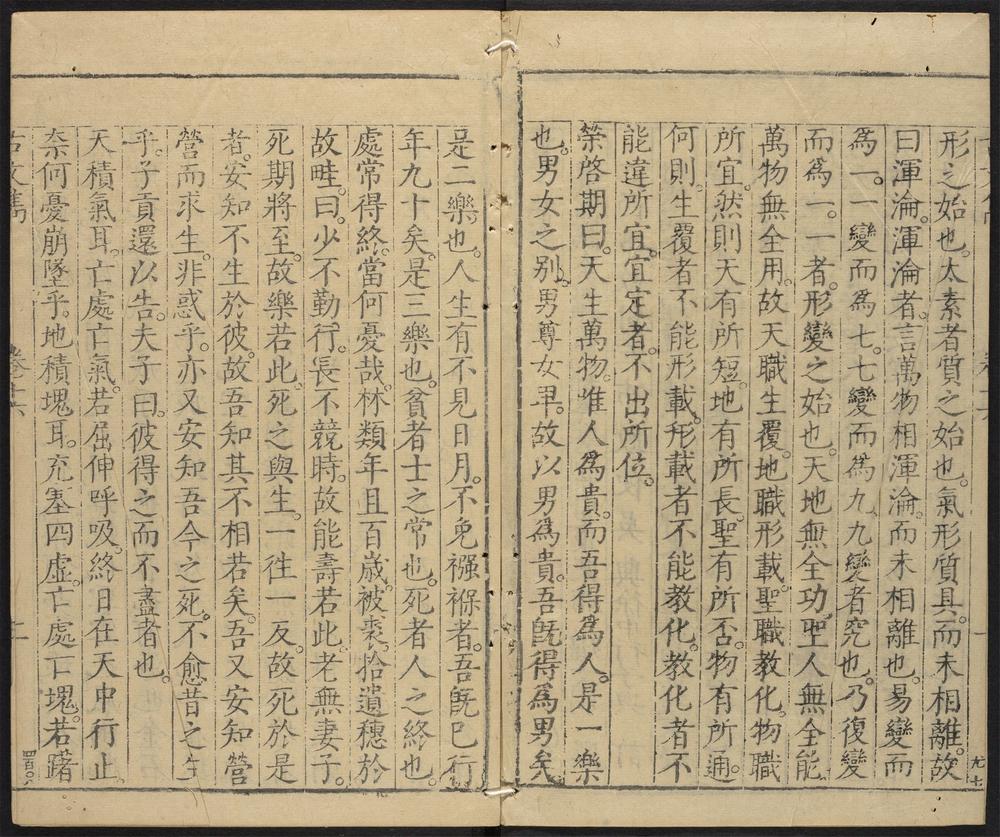 形之始也。太素者質之始也。氣形質具。而未相離。故
曰渾淪。渾淪者。言萬物相渾淪。而未相離也。易變而
爲一。一變而爲七。七變而爲九。九變者究也。乃復變
而爲一。一者。形變之始也。天地無全功。聖人無全能
萬物無全用。故天職生覆。地職形載。聖職教化。物職
所宜。然則天有所短。地有所長。聖有所否。物有所通。
何則。生覆者不能形載。形載者不能教化。教化者不
能違所宜。宜定者。不出所位。
榮啓期曰。天生萬物。唯人爲貴。而吾得爲人。是一樂
也。男女之別。男尊女卑。故以男爲貴。吾旣得爲男矣
是二樂也。人生有不見日月。不免襁褓者。吾旣已行
年九十矣。是三樂也。貧者士之常也。死者人之終也。
處常得終。當何憂哉。林類年且百歲。被裘。拾遺穗於
故畦。曰。少不勤行。長不競時。故能壽若此。老無妻子。
死期將至。故樂若此。死之與生。一徃一反。故死於是
者。安知不生於彼。故吾知其不相若矣。吾又安知營
營而求生。非惑乎。亦又安知吾今之死。不愈昔之生
乎。子貢還以告。夫子曰。彼得之而不盡者也。
天積氣耳。亡處亡氣。若屈伸呼吸。終日在天中行止。
柰何憂崩墜乎。地積塊耳。充塞四虛。亡處亡塊。若躇